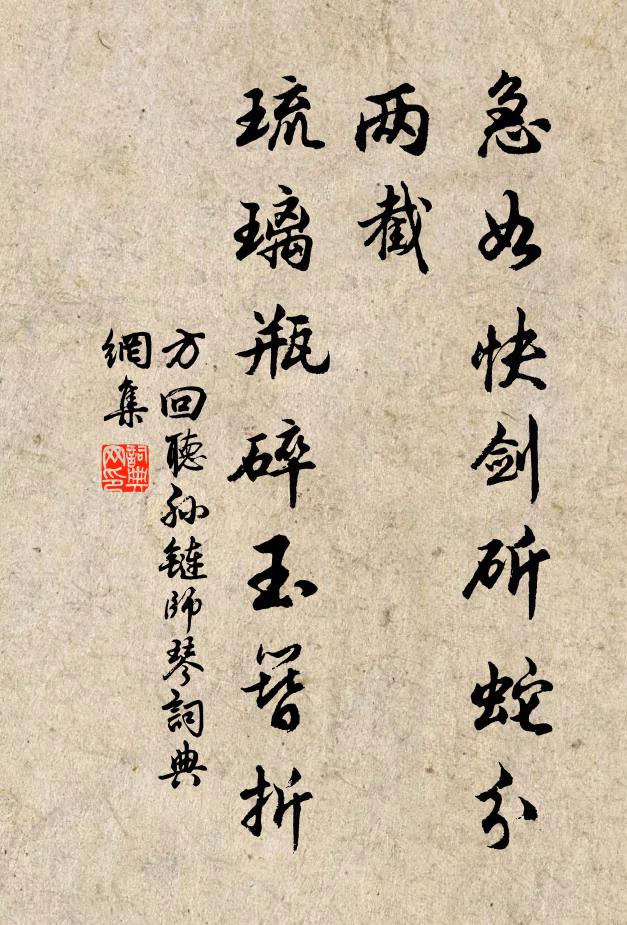 急如快剑斫蛇分
两截
琉璃瓶碎玉簪折
方回聴孙鏈師琴詞典
網集
詞典網印